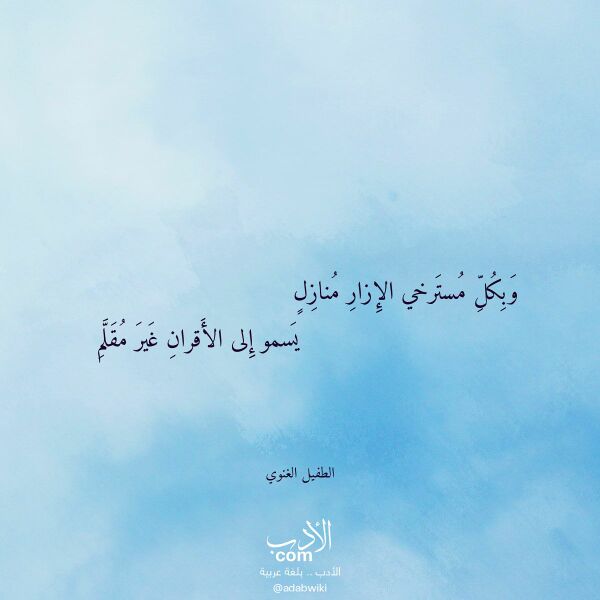 وَبِكُلِّ مُستَرخي الإِزارِ مُنازِلٍ
يَسمو إِلى الأَقرانِ غَيرَ مُقَلَّمِ
الطفيل الغنوي
الأدب
com
الأدب .. بلغة عربية
@adabwiki